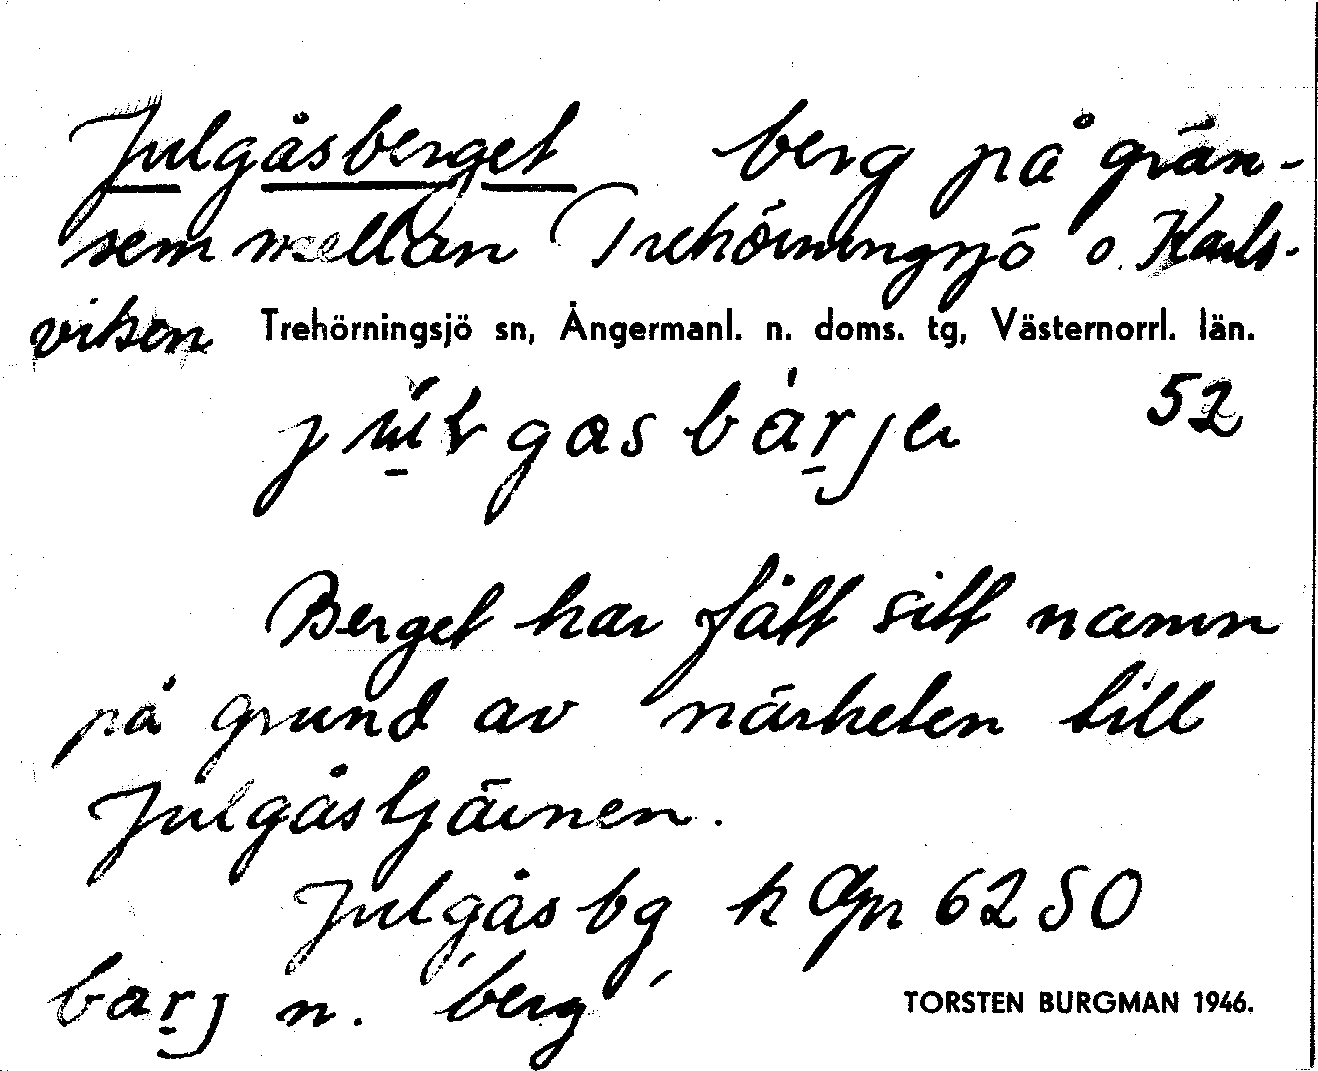 Julgåsberget berg på grän-
sen mellan Trehörningsjö o. Karls-
viken Trehörningsjö sn, Ångermanl. n. doms. tg, Västernorrl. län.
52
Berget har fått sitt namn
på grund av närheten till
Julgåstjärnen.
Julgåsbg k Gpn 6250
barj n. 'berg'
TORSTEN BURGMAN 1946.